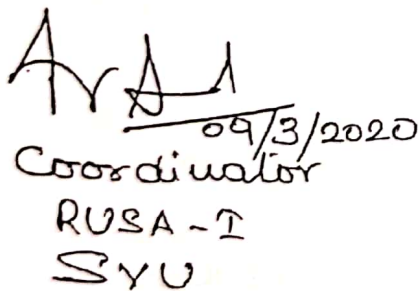 09/3/2020
Coordinator
RUSA-I
SVU